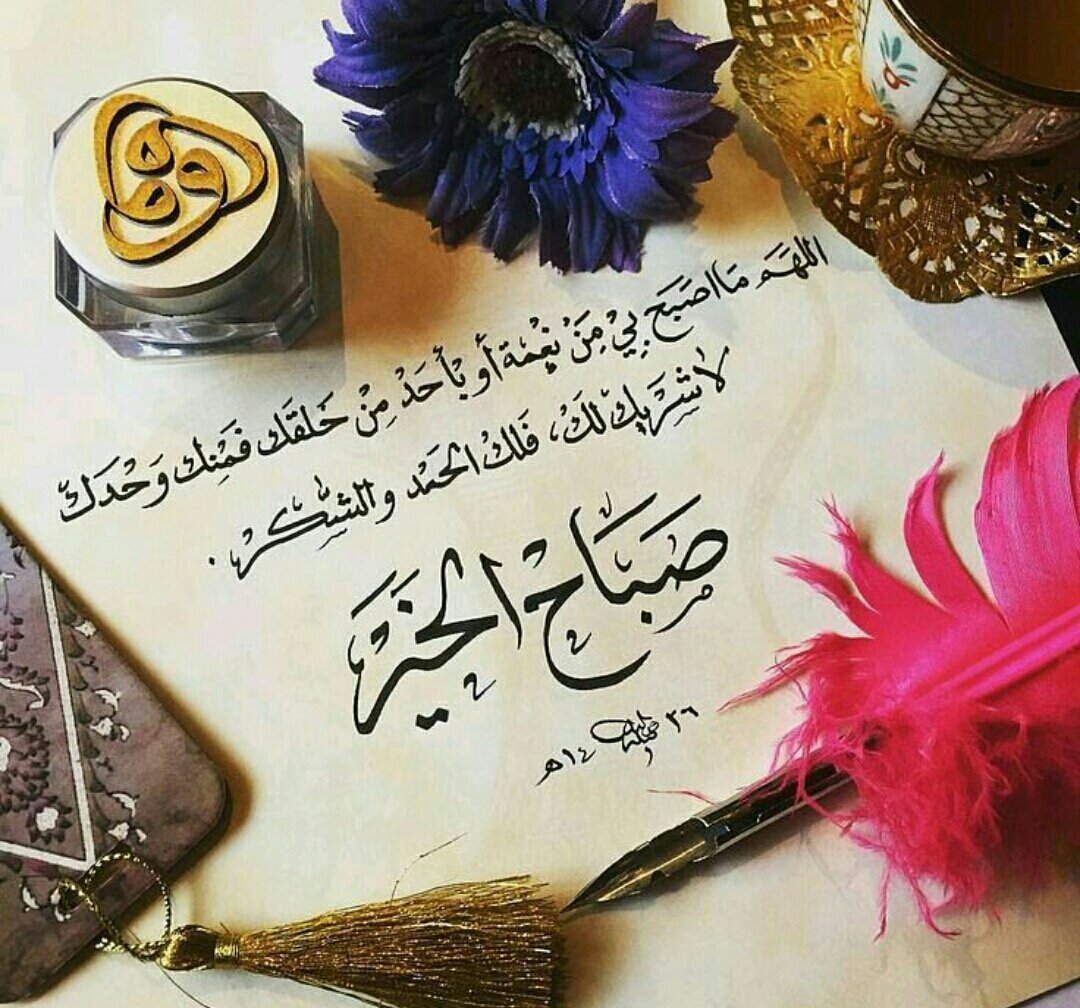 اللهَم مَا اصَبَح بِيْ مِنْ نِعْمْة أو بْأحَدْ مِنْ خَلقَك فَمْنِك وَحْدَك
لا شَرْيك لَكْ، فَلكْ الحَمْد والشّكر.
صَبَاح الخَيَر
و ه ه
٣٦ ١٤هـ